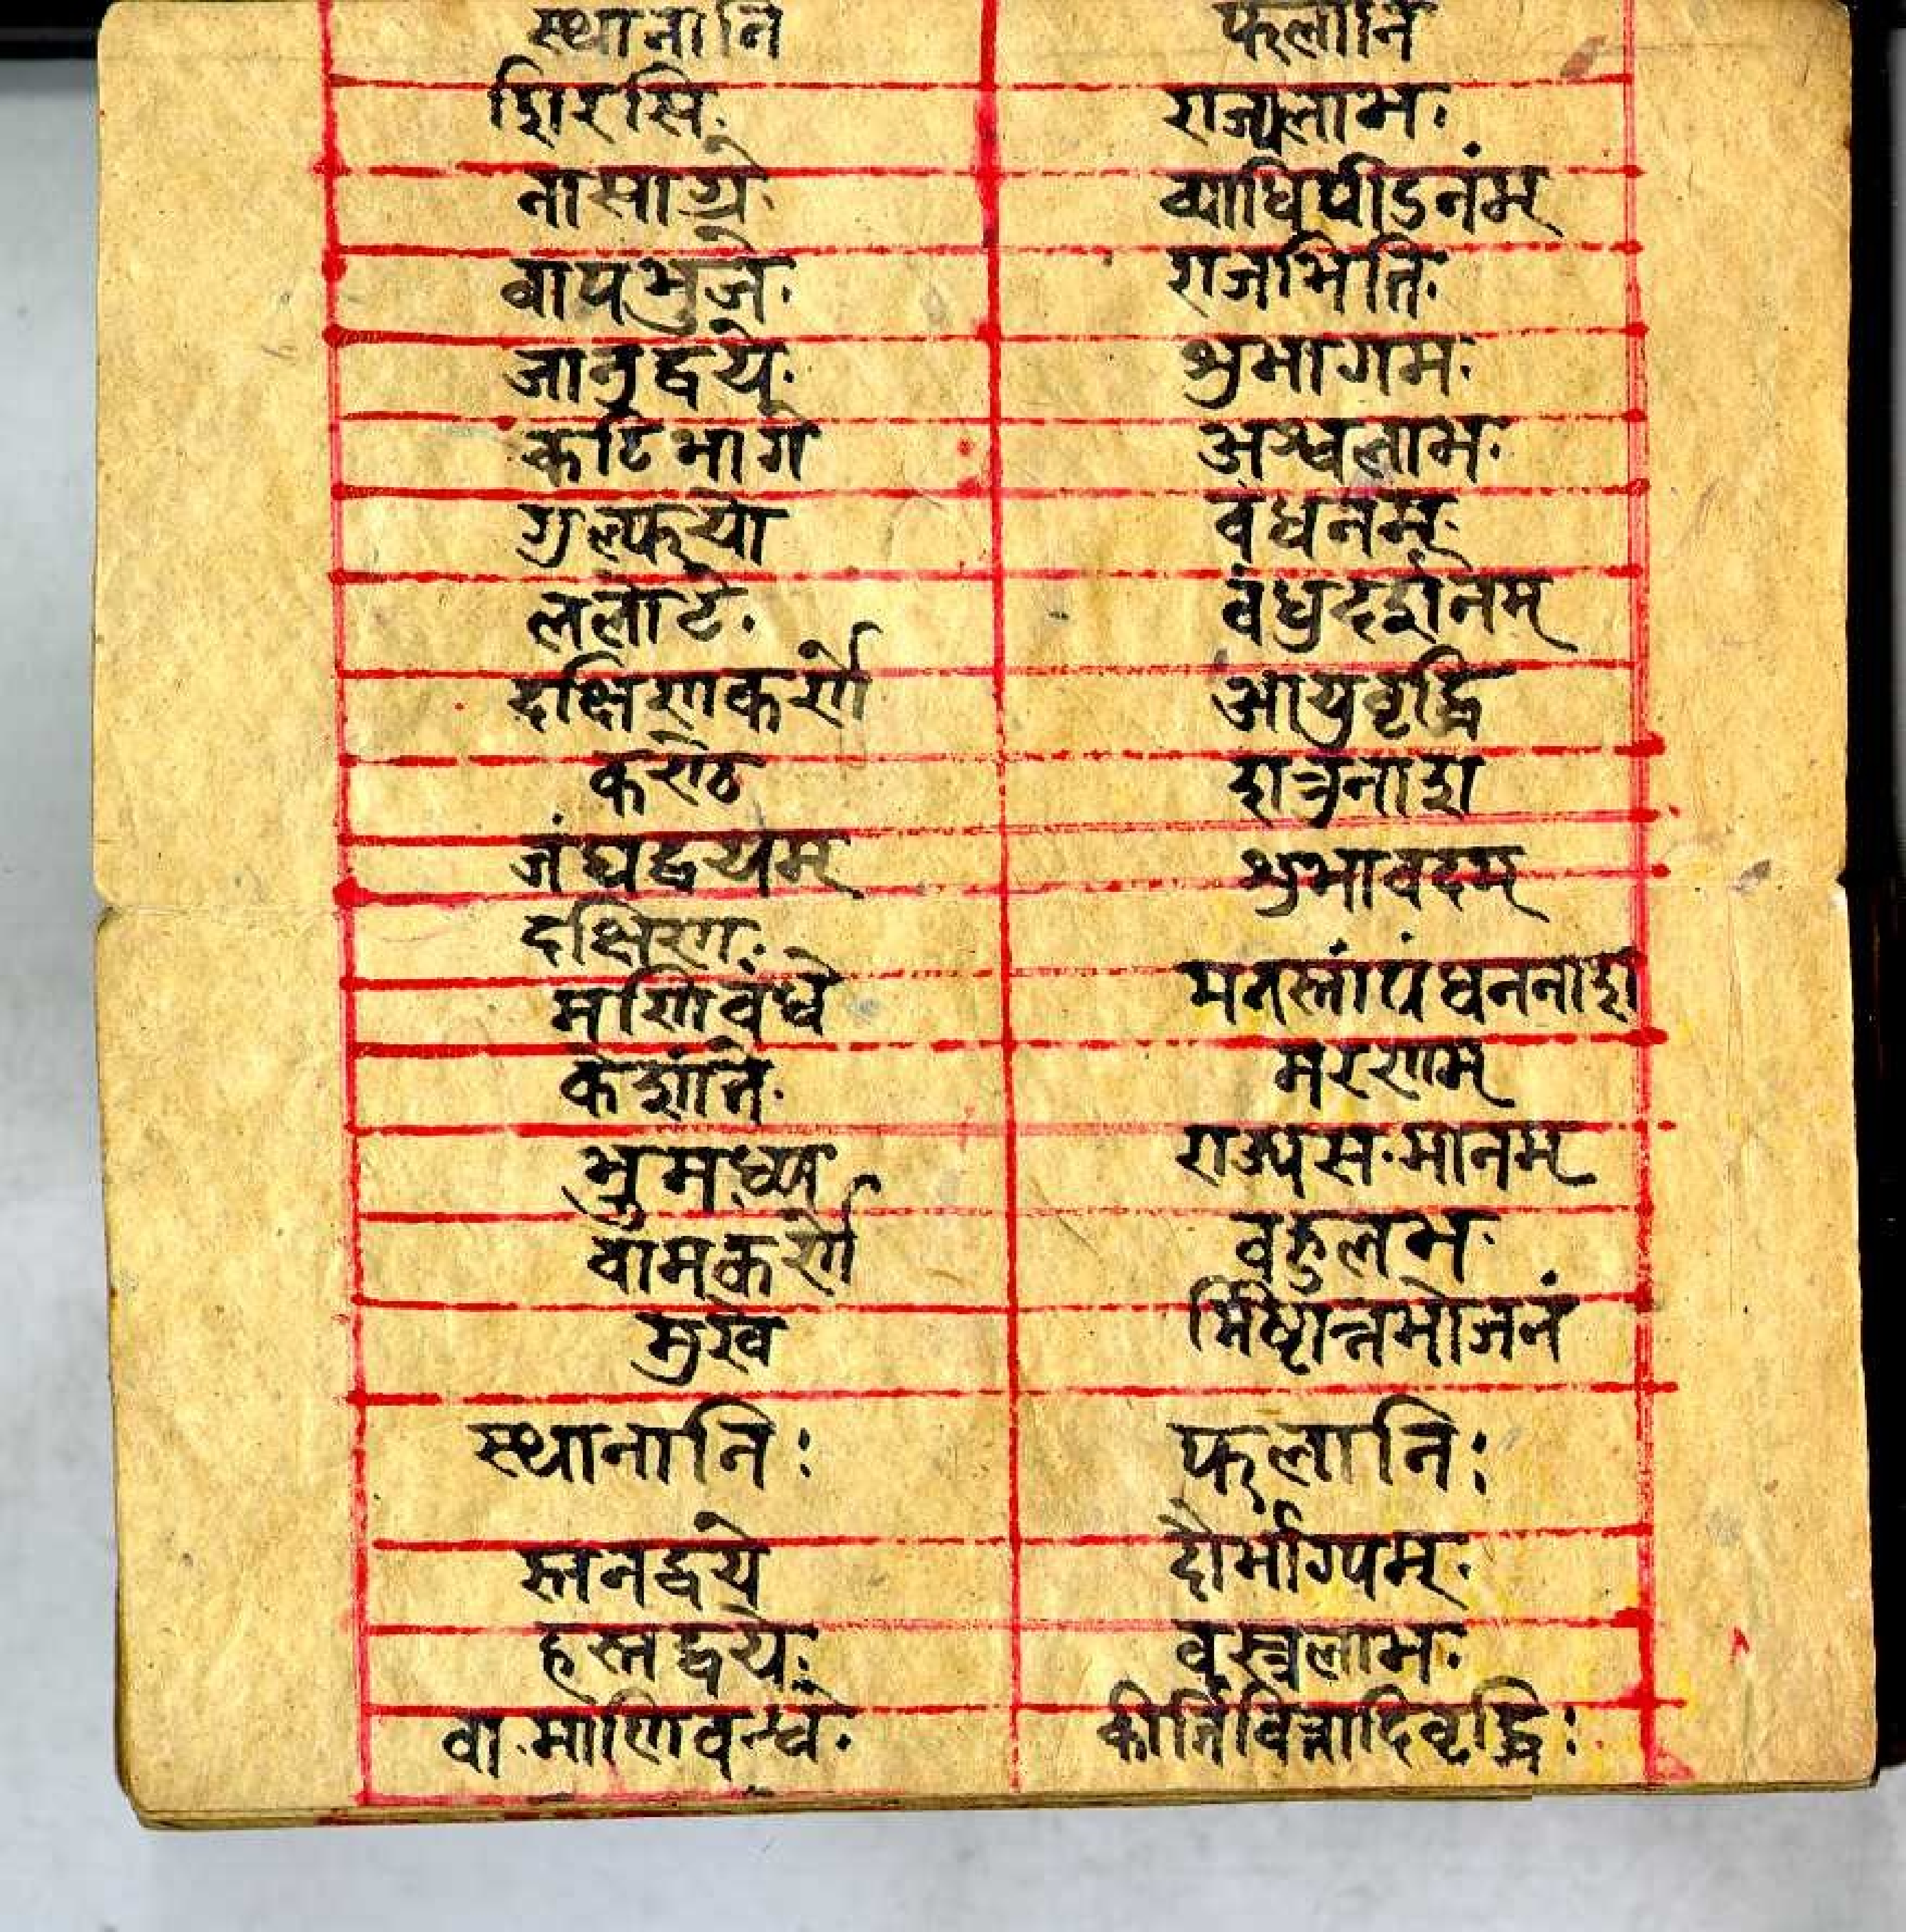 स्थानानि फलानि
शिरसि. राज्यलाभ.
नासाग्रे. व्याधिपीडनंम्
वापभुजे. राजभिति.
जानुद्वये. शुभागम.
कटिभागे अश्वलाभ.
गुल्फयो वंधनम्.
ललाटे. वंधुदर्शनम्
दक्षिणकर्णे आयुवृद्धि
कण्ठे शत्रुनाश
जंघद्वयम् शुभावदम्
दक्षिण.
मणिवंधे मनस्तांपंधननाश
केशांते. मरणम्
भ्रुमध्य राज्यस.मानम्
वामकर्णे वहुलभ.
मुख मिष्टान्नभोजनं
स्थानानि: फलानि:
स्तनद्वये दौर्भाग्यम्.
हस्तद्वये. वस्त्रलाभ.
वा.माणिवन्धे. कीर्तिवित्तादिवृद्धि: